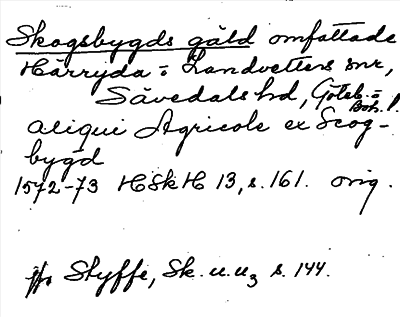 Skogsbygds gäld omfattade
Härryda o Landvetters snr,
Sävedals hd, Göteb. o
Boh. l.
aliqui Agricole ex Scog-
bygd
1572-73 HSkH 13, s. 161. orig.
Styffe, Sk. u. u3 s. 144.